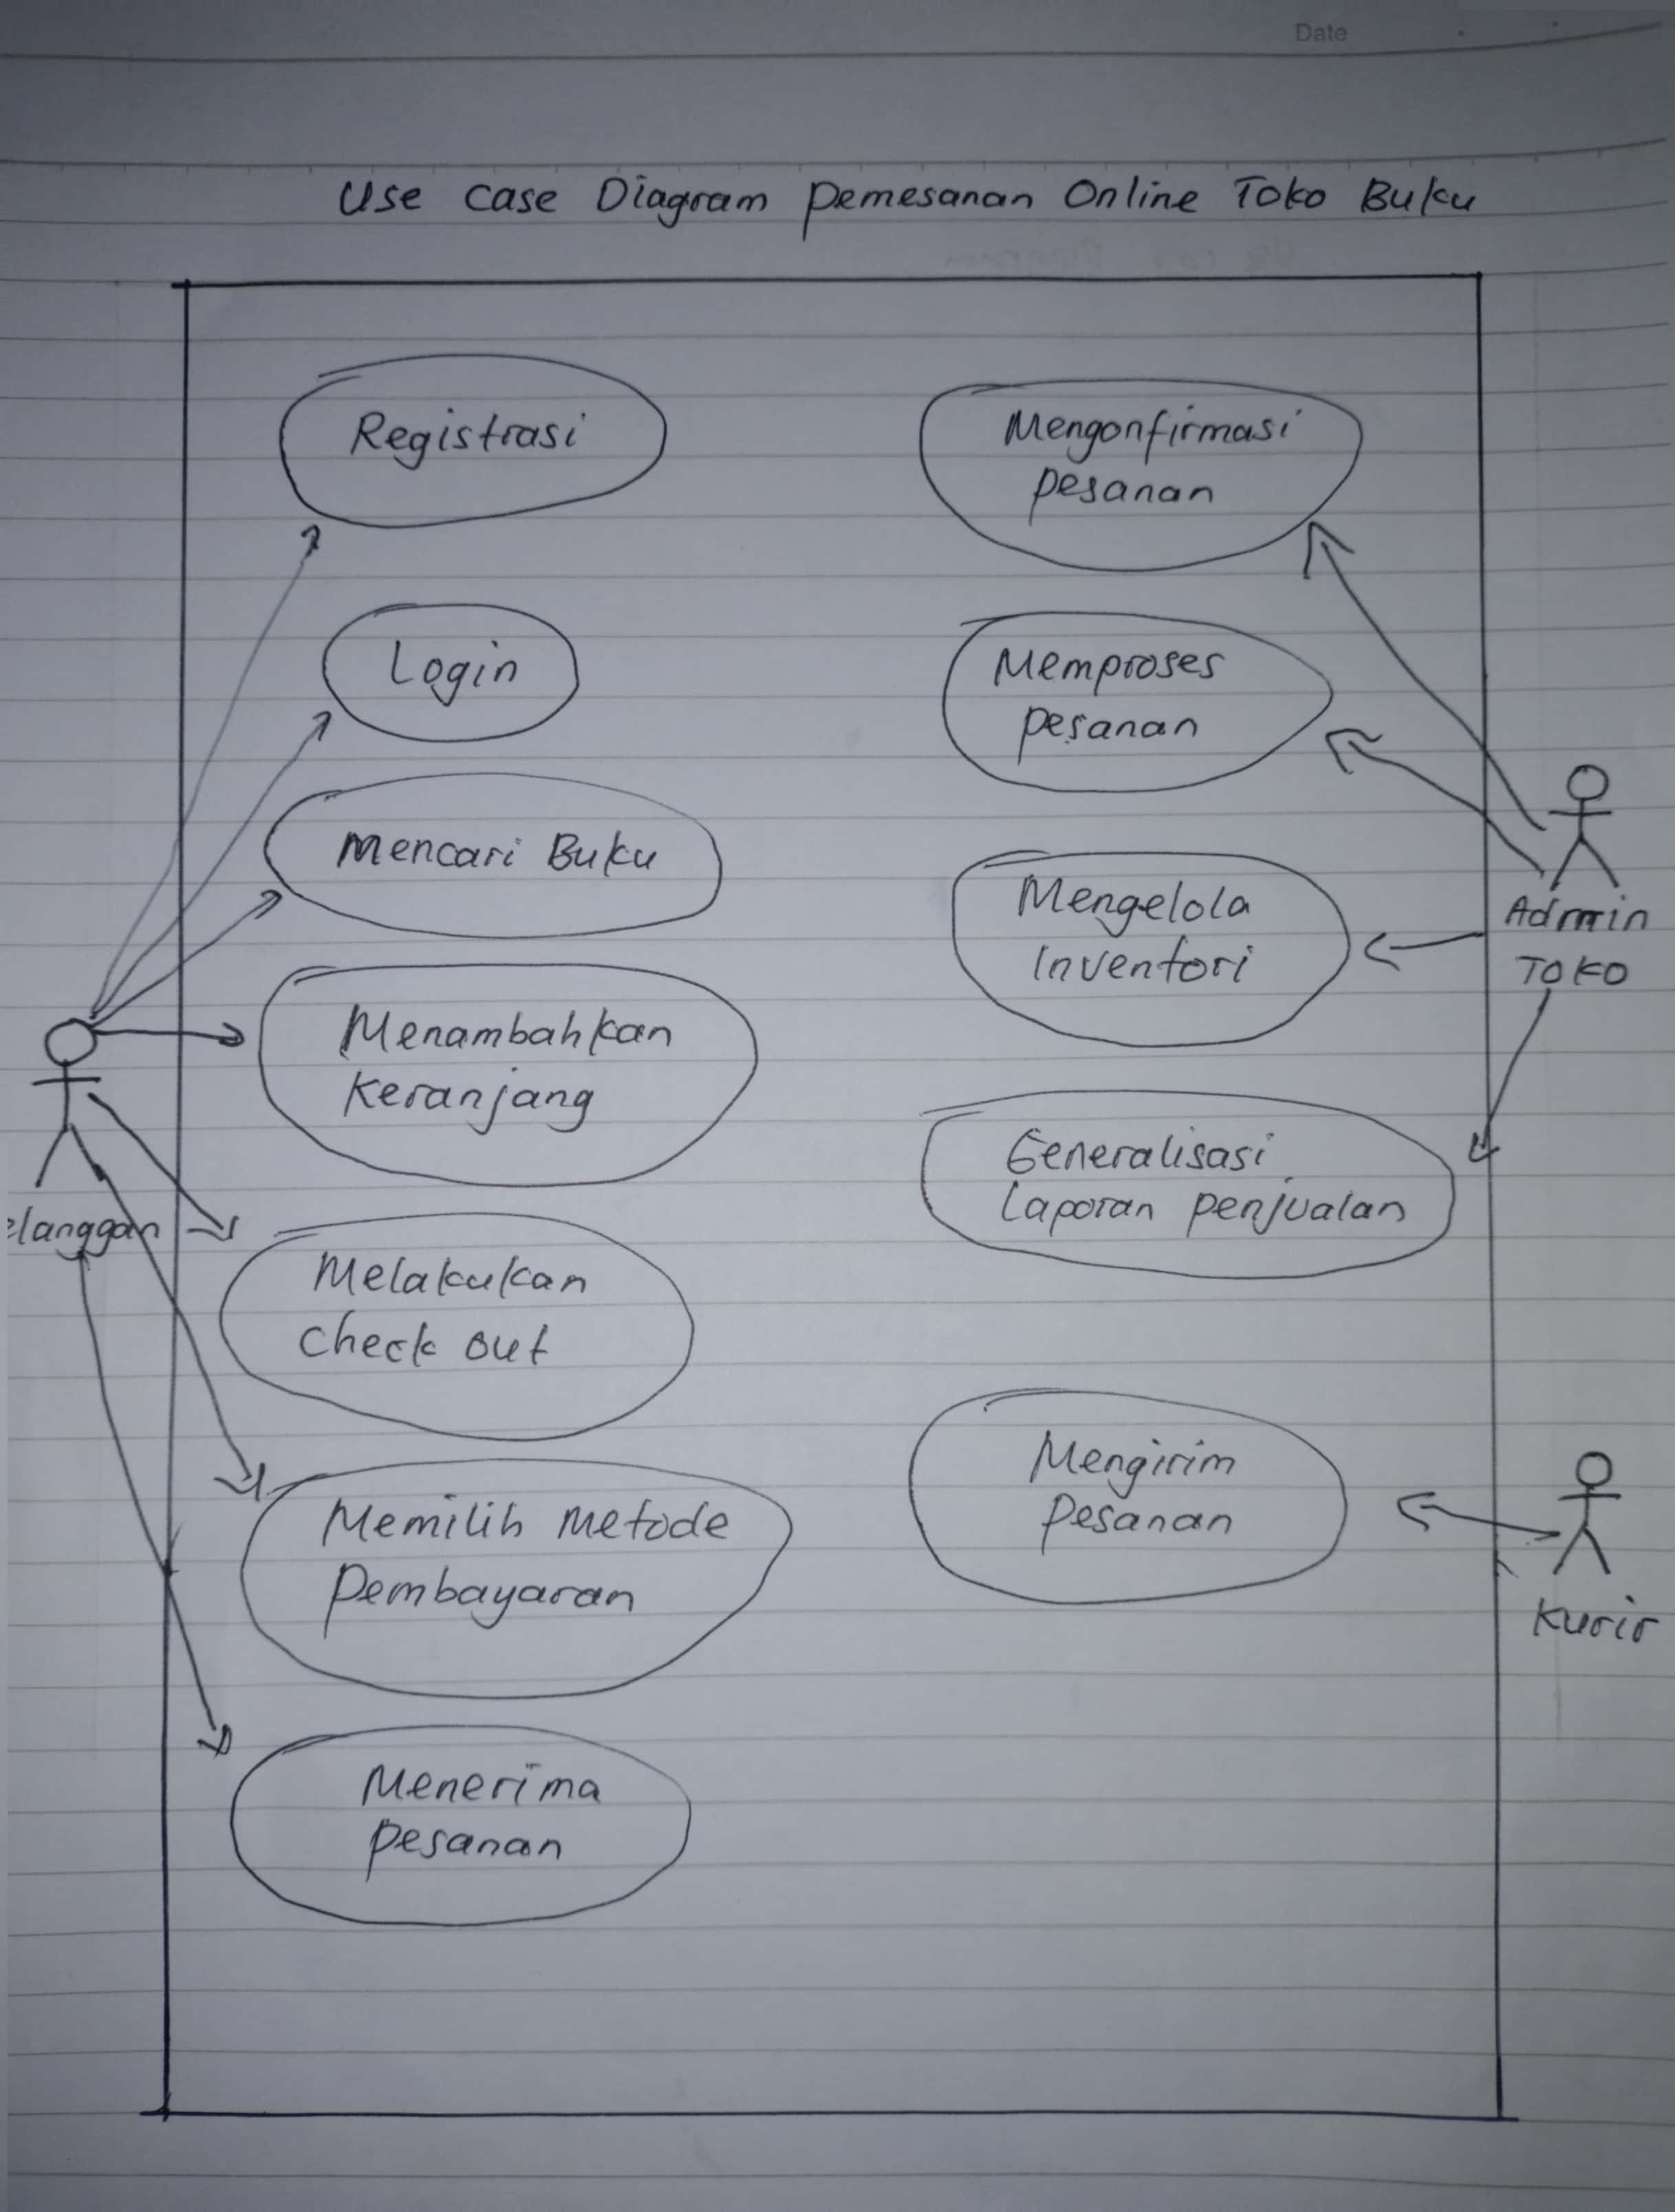 Date
Use Case Diagram Pemesanan Online Toko Buku
Registrasi
Login
Mencari Buku
Menambahkan
Keranjang
elanggan
Melakukan
Check out
Memilih Metode
Pembayaran
Menerima
Pesanan
Mengonfirmasi
Pesanan
Memproses
Pesanan
Mengelola
Inventori
Admin
Toko
Generalisasi
Laporan Penjualan
Mengirim
Pesanan
Kurir